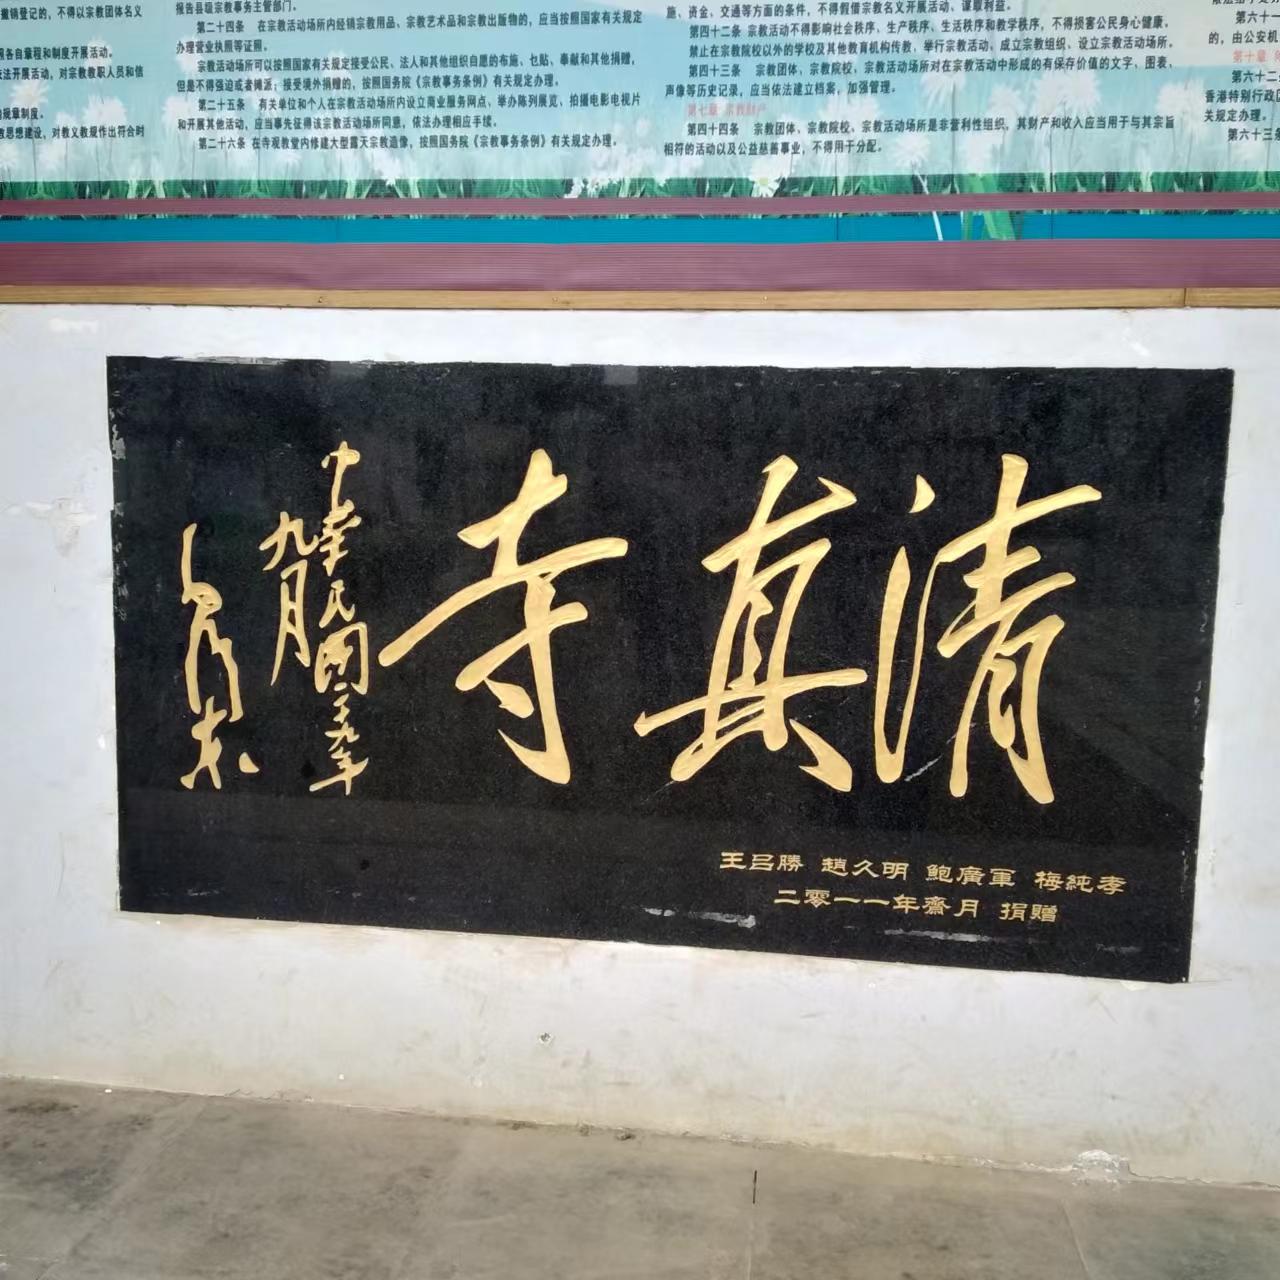 撤销登记的，不得以宗教团体名义
照各自章程和制度开展活动。
法开展活动，对宗教教职人员和信
规章制度。
教思想建设，对教义教规作出符合时
报告县级宗教事务主管部门。
第二十四条 在宗教活动场所内经销宗教用品、宗教艺术品和宗教出版物的，应当按照国家有关规定
办理营业执照等证照。
宗教活动场所可以按照国家有关规定接受公民、法人和其他组织自愿的布施、乜贴、奉献和其他捐赠，
但是不得强迫或者摊派；接受境外捐赠的，按照国务院《宗教事务条例》有关规定办理。
第二十五条 有关单位和个人在宗教活动场所内设立商业服务网点、举办陈列展览、拍摄电影电视片
和开展其他活动，应当事先征得该宗教活动场所同意，依法办理相应手续。
第二十六条 在寺观教堂内修建大型露天宗教造像，按照国务院《宗教事务条例》有关规定办理。
施、资金、交通等方面的条件，不得假借宗教名义开展活动、谋取利益。
第四十二条 宗教活动不得影响社会秩序、生产秩序、生活秩序和教学秩序，不得损害公民身心健康。
禁止在宗教院校以外的学校及其他教育机构传教、举行宗教活动、成立宗教组织、设立宗教活动场所。
第四十三条 宗教团体、宗教院校、宗教活动场所对在宗教活动中形成的有保存价值的文字、图表、
声像等历史记录，应当依法建立档案，加强管理。
第七章 宗教财产
第四十四条 宗教团体、宗教院校、宗教活动场所是非营利性组织，其财产和收入应当用于与其宗旨
相符的活动以及公益慈善事业，不得用于分配。
第六十一
的，由公安机
第十章
第六十二
香港特别行政区
关规定办理。
第六十三条
清真寺
中華民國二九年
九月
王吕勝 趙久明 鮑廣軍 梅純孝
二零一一年齋月 捐贈